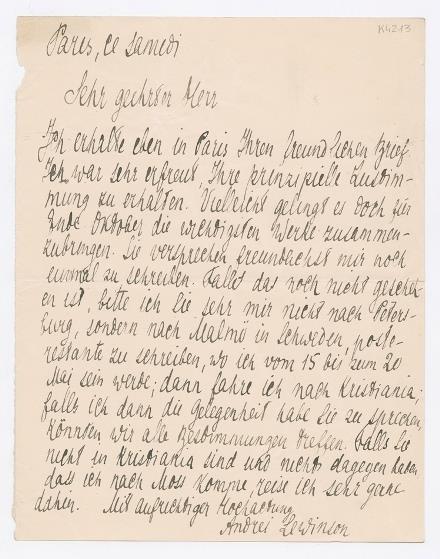 K4213
Paris, ce samedi
Sehr geehrter Herr
Ich erhalte eben in Paris Ihren freundlichen Brief.
Ich war sehr erfreut, Ihre prinzipielle Zustim-
mung zu erhalten. Vielleicht gelingt es doch für
Ende Oktober die wichtigsten Werke zusammen-
zubringen. Sie versprechen freundlichst mir noch
einmal zu schreiben. Falls das noch nicht gescheh-
en ist, bitte ich Sie sehr mir nicht nach Peters-
burg, sondern nach Malmö in Schweden, poste-
restante zu schreiben, wo ich vom 15 bis zum 20
Mai sein werde; dann fahre ich nach Kristiania;
falls ich dann die Gelegenheit habe Sie zu sprechen,
könnten wir alle Bestimmungen treffen. Falls Sie
nicht in Kristiania sind und nichts dagegen haben
dass ich nach Moss komme, reise ich sehr gerne
dahin. Mit aufrichtiger Hochachtung
Andrei Lewinson